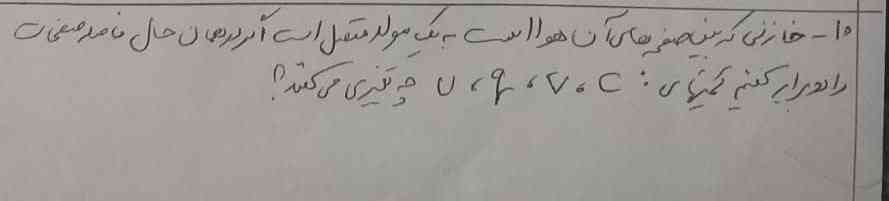 ۱۰- خازنی که بین صفحه های آن هوا است به یک مولد متصل است اگر در همان حال فاصله صفحات
را دو برابر کنیم کمیتهای : C ، V ، q ، U چه تغییری می کنند؟